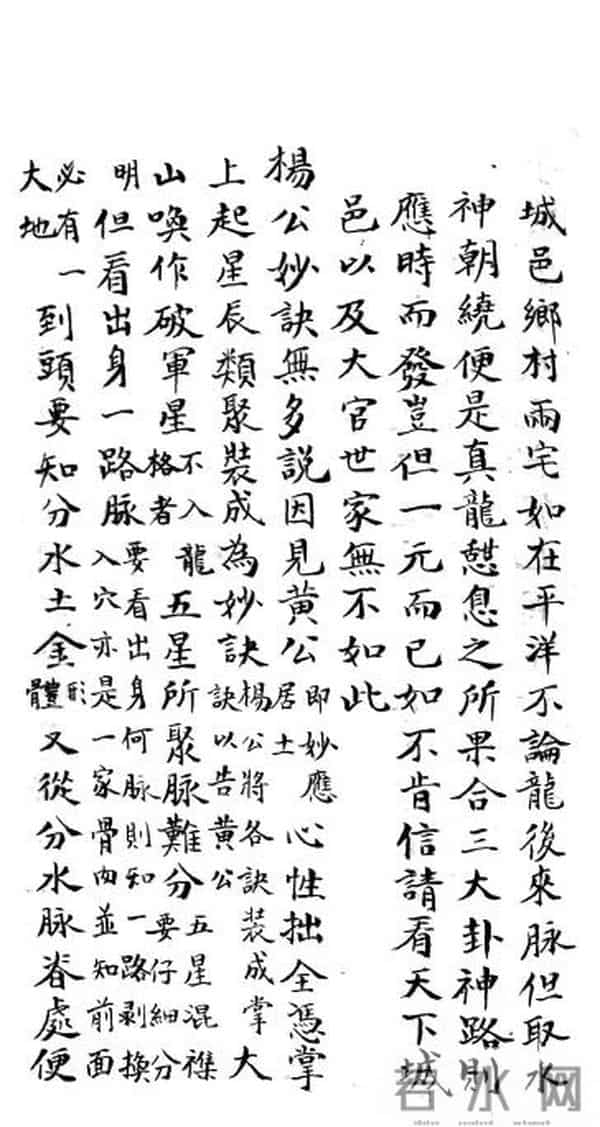 城邑鄉村兩宅如在平洋不論龍後來脉但取水
神朝繞便是真龍憇息之所果合三大卦神路則
應時而發豈但一元而已如不肯信請看天下城
邑以及大官世家無不如此
楊公妙訣無多説因見黃公即妙應居士心性拙全憑掌
上起星辰類聚裝成為妙訣楊公將各訣裝成掌訣以告黃公大
山喚作破軍星不入格者龍五星所聚脉難分五星混襍要仔細分
明但看出身一路脉要看出身何脉則知一路剥換入穴亦是一家骨肉並知前面
必有大地一到頭要知分水土金形體又從分水脉脊處便
若水网